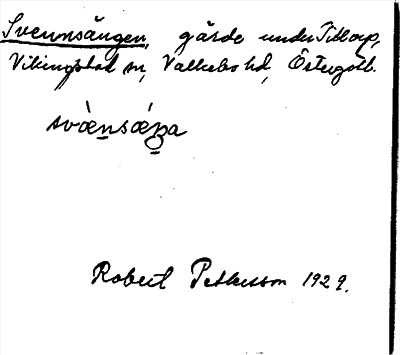 Svennsängen, gärde under Tittorp,
Vikingstad sn, Valkebo hd, Östergötl.
svæ̀nsǽŋa
Robert Pettersson 1929.